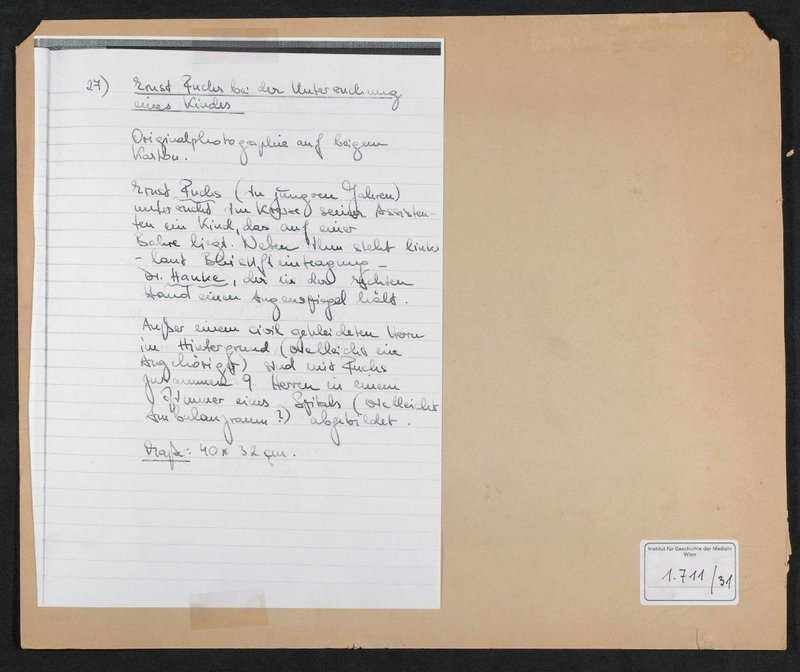 27) Ernst Fuchs bei der Untersuchung
eines Kindes
Originalphotographie auf beigem
Karton.
Ernst Fuchs (in jüngren Jahren)
untersucht im Kreise seiner Assisten-
ten ein Kind, das auf einer
Bahre liegt. Neben ihm steht links
- laut Bleistifteintragung -
Dr. Hanke, der in der rechten
Hand einen Augenspiegel hält.
Außer einem civil gekleideten Herrn
im Hintergrund (vielleicht ein
Angehöriger) sind mit Fuchs
zusammen 9 Herren in einem
Zimmer eines Spitals (vielleicht
Ambulanzraum?) abgebildet.
Maße: 40 x 32 cm.
Institut für Geschichte der Medizin
Wien
1.711/31